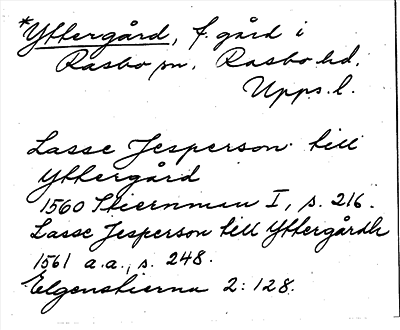 *Yttergård, f. gård i
Rasbo sn, Rasbo hd,
Upps. l.
Lasse Jesperson till
Yttergård
1560 Stiernman I, s. 216.
Lasse Jesperson till Yttergårdh
1561 a.a., s. 248.
Elgenstierna 2: 128.